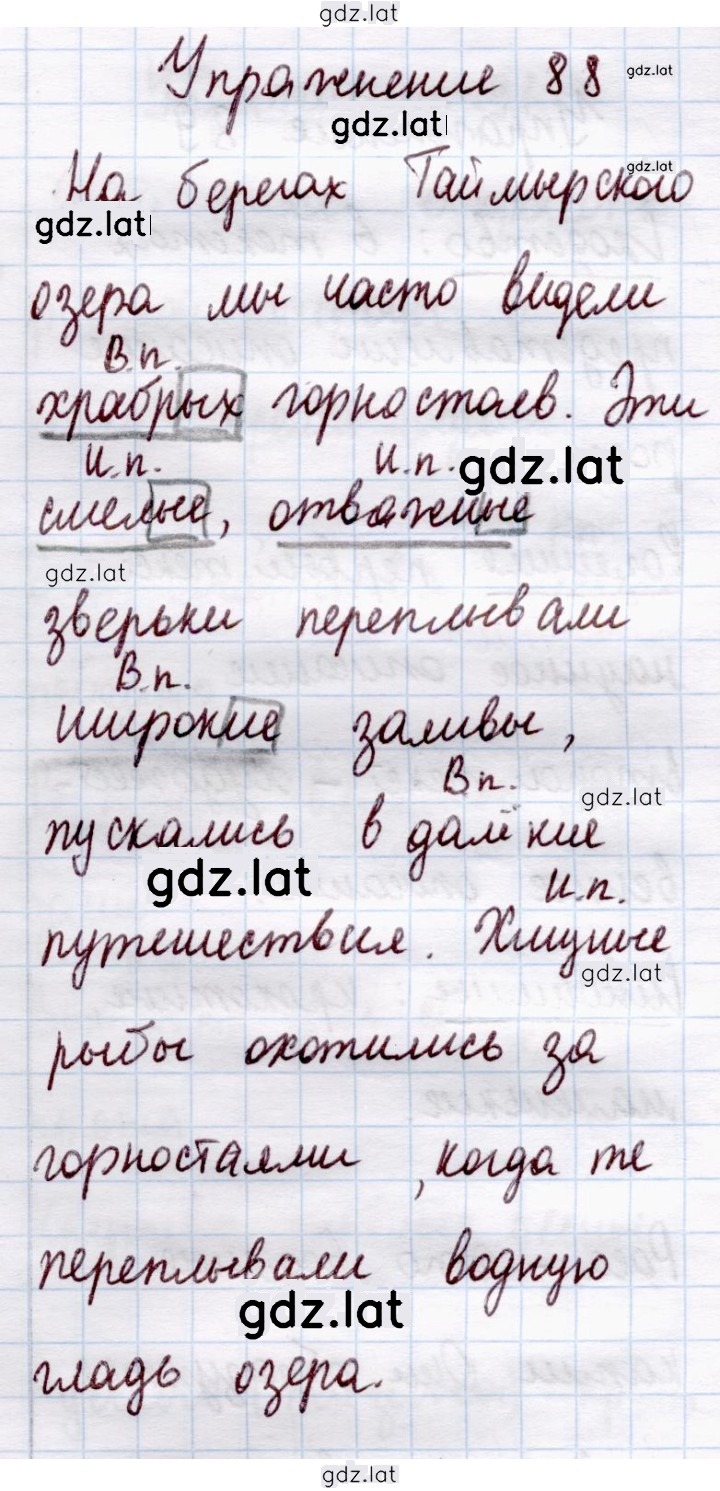 gdz.lat
Упражнение 88
gdz.lat
gdz.lat
На берегах Таймырского
gdz.lat
gdz.lat
озера мы часто видели
В.п.
храбрых горностаев. Эти
И.п. И.п.
gdz.lat
смелые, отважные
gdz.lat
зверьки переплывали
В.п.
широкие заливы,
В п.
gdz.lat
пускались в далёкие
gdz.lat
И.п.
путешествия. Хищные
gdz.lat
рыбы охотились за
горностаями, когда те
переплывали водную
gdz.lat
гладь озера.
gdz.lat